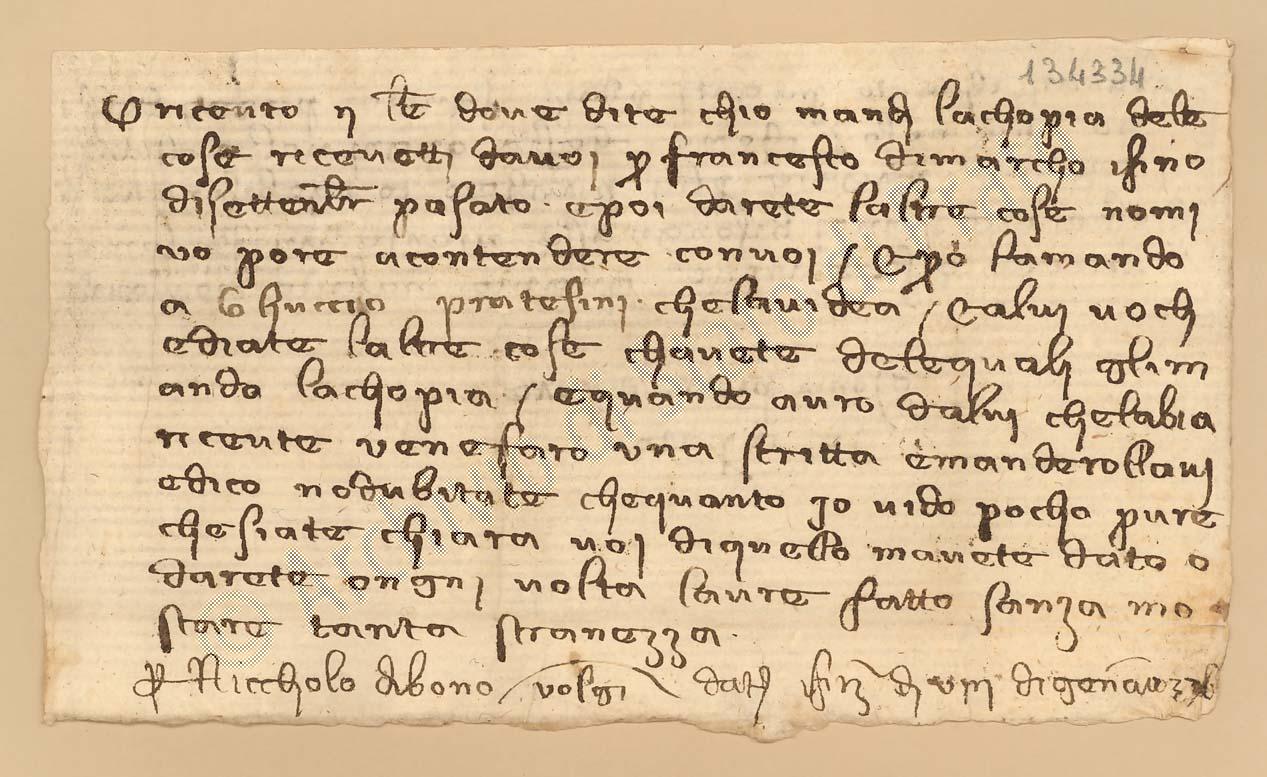 134334
O ricevto ij lre dove dite chio mandj lachopia dele
cose ricevetti davoi p francescho dimarcho isino
disettenbr pasato epoi darete laltre cose nomi
vo pore acontendere convoi / epo lamando
a Ghuccio pratesini chelavidea / ealuj voch
ediate laltre cose chavete delequalj glim
ando lachopia / equando auro daluj chelabia
ricevte venefaro vna scritta emanderollavj
edico nodubitate chequanto io vido pocho pure
chesiate chiara voi diquello mavete dato o
darete ongni volta laure fatto sanza mo
strare tanta stranezza
p Niccholo dbono / volgi datj di viij digenaio